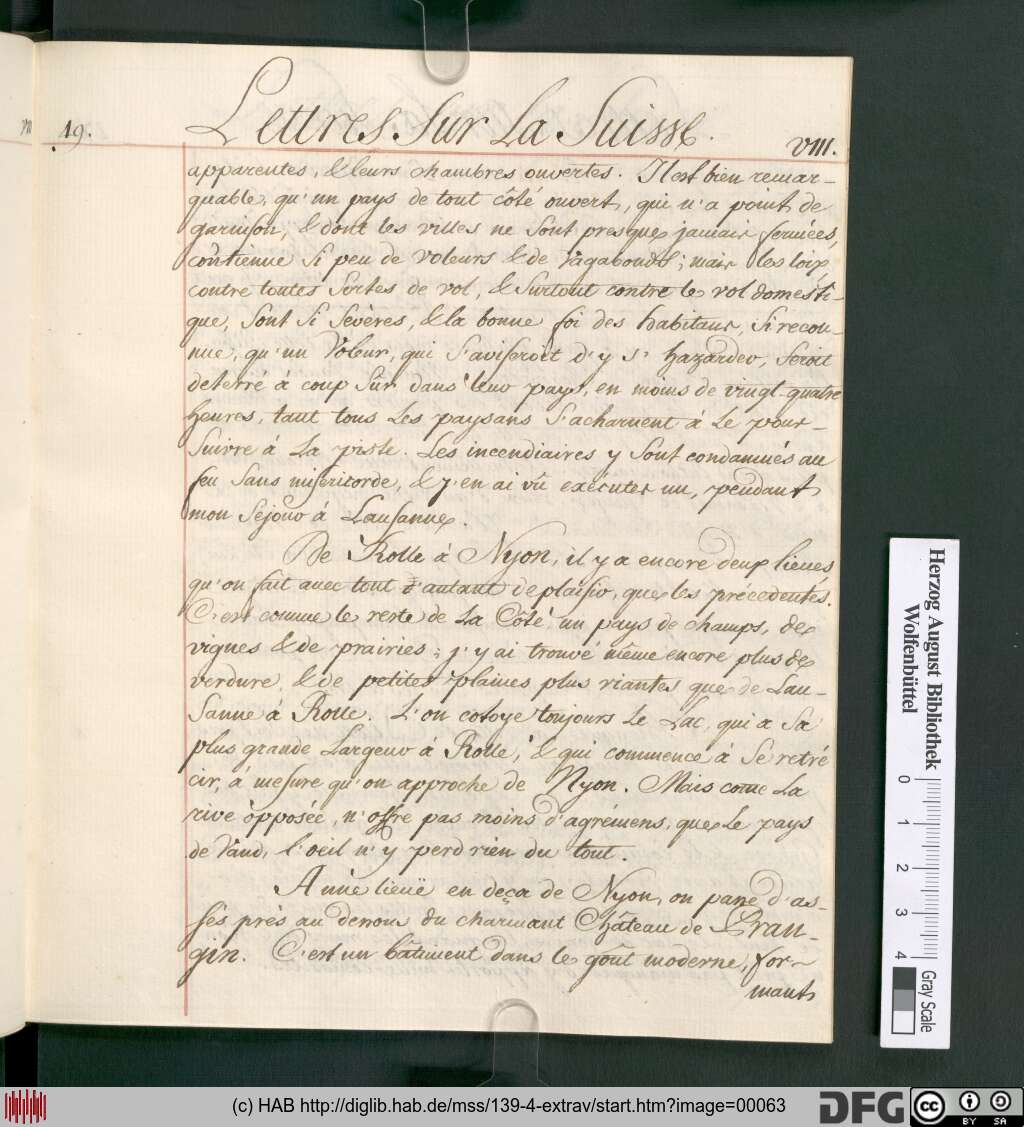 49. Lettres Sur La Suisse. VIII.
apparentes, & leurs chambres ouvertes. Il est bien remar-
quable, qu'un pays de tout côté ouvert, qui n'a point de
garnison, & dont les villes ne sont presque jamais fermées,
contienne si peu de voleurs & de vagabonds; mais les loix
contre toutes sortes de vol, & surtout contre le vol domesti-
que, sont si sevères, & la bonne foi des habitans, si recon-
nue, qu'un voleur, qui s'aviseroit d'y s'hazarder, seroit
deterré à coup sûr dans leur pays, en moins de vingt-quatre
heures, tant tous les paysans s'acharnent à le pour-
suivre à la piste. Les incendiaires y sont condamnés au
feu sans misericorde, & j'en ai vû executer un, pendant
mon sejour à Lausanne.
De Rolle à Nyon, il y a encore deux lieues
qu'on fait avec tout d'autant de plaisir, que les précedentes.
C'est comme le reste de La Côte, un pays de champs, de
vignes & de prairies; j'y ai trouvé même encore plus de
verdure, & de petites plaines plus riantes que de Lau-
sanne à Rolle. L'on cotoye toujours le Lac, qui a sa
plus grande largeur à Rolle, & qui commence à se retré
cir, à mesure qu'on approche de Nyon. Mais come la
rive opposée, n'offre pas moins d'agrémens, que le pays
de Vaud, l'oeil n'y perd rien du tout.
A une lieuë en deça de Nyon, on passe d'as-
sés près au dessous du charmant Château de Pran-
gin. C'est un bâtiment dans le goût moderne, for-
mant
Herzog August Bibliothek
Wolfenbüttel
0 1 2 3 4
Gray Scale
(c) HAB http://diglib.hab.de/mss/139-4-extrav/start.htm?image=00063
DFG
cc BY SA